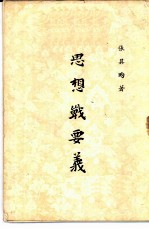 張其昀著
思想戰要義